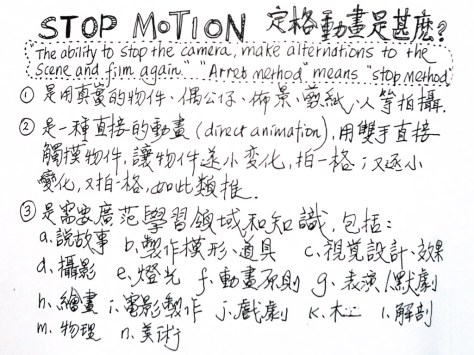 STOP MOTION 定格動畫是甚麽?
"The ability to stop the camera, make alternations to the
scene and film again." "Arret method" means "stop method
① 是用真實的物件、偶公仔、佈景、剪紙、人等拍攝.
② 是一種直接的動畫 (direct animation), 用雙手直接
觸摸物件, 讓物件逐小変化, 拍一格; 又逐小
變化, 又拍一格, 如此類推.
③ 是需要廣范學習領域和知識, 包括:
a. 說故事 b. 製作模形、道具 c. 視覺設計、效果
d. 攝影 e. 燈光 f. 動畫原則 g. 表演/默劇
h. 繪畫 i. 電影製作 j. 戲劇 k. 木工 l. 解剖
m. 物理 n. 美術